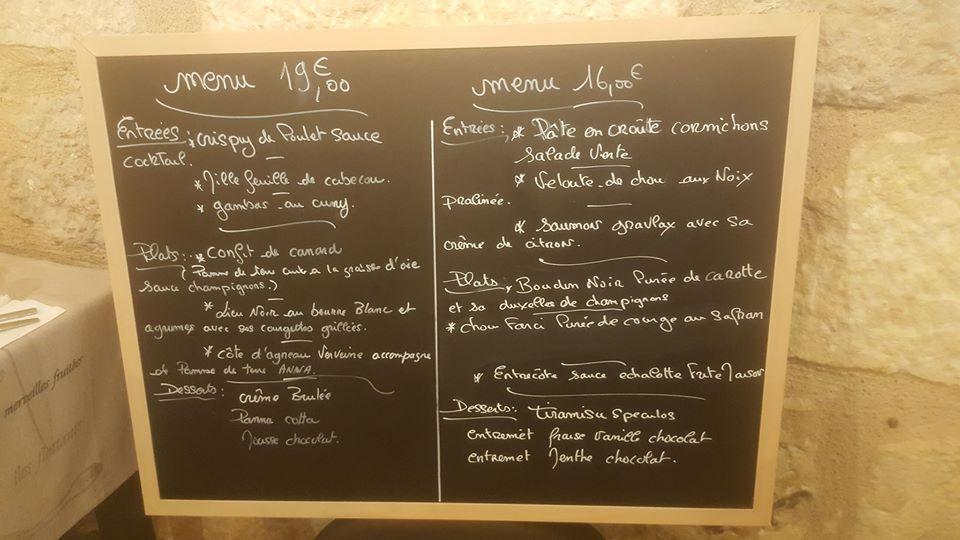 menu 19€,00
Entrées : * crispy de Poulet sauce
cocktail.
* Mille feuille de cabecou.
* gambas au curry.
Plats : * Confit de canard
(Pomme de terre cuit a la graisse d'oie
sauce champignons.)
* Lieu Noir au beurre Blanc et
agrumes avec ses courgettes grillées.
* côte d'agneau Verveine accompagne
de Pomme de terre ANNA.
Desserts : crème Brulée
Panna cotta
Mousse chocolat.
menu 16,00€
Entrées : * Pâte en croûte cornichons
salade verte
* Veloute de chou aux Noix
pralinée.
* saumon gravlax avec sa
crème de citron.
Plats * Boudin Noir Purée de carotte
et sa duxelles de champignons
* chou Farci Purée de courge au safran
* Entrecôte sauce echalotte frite Maison
Desserts : tiramisu speculos
entremêt fraise vanille chocolat
entremet Menthe chocolat.
merveilles fruitées